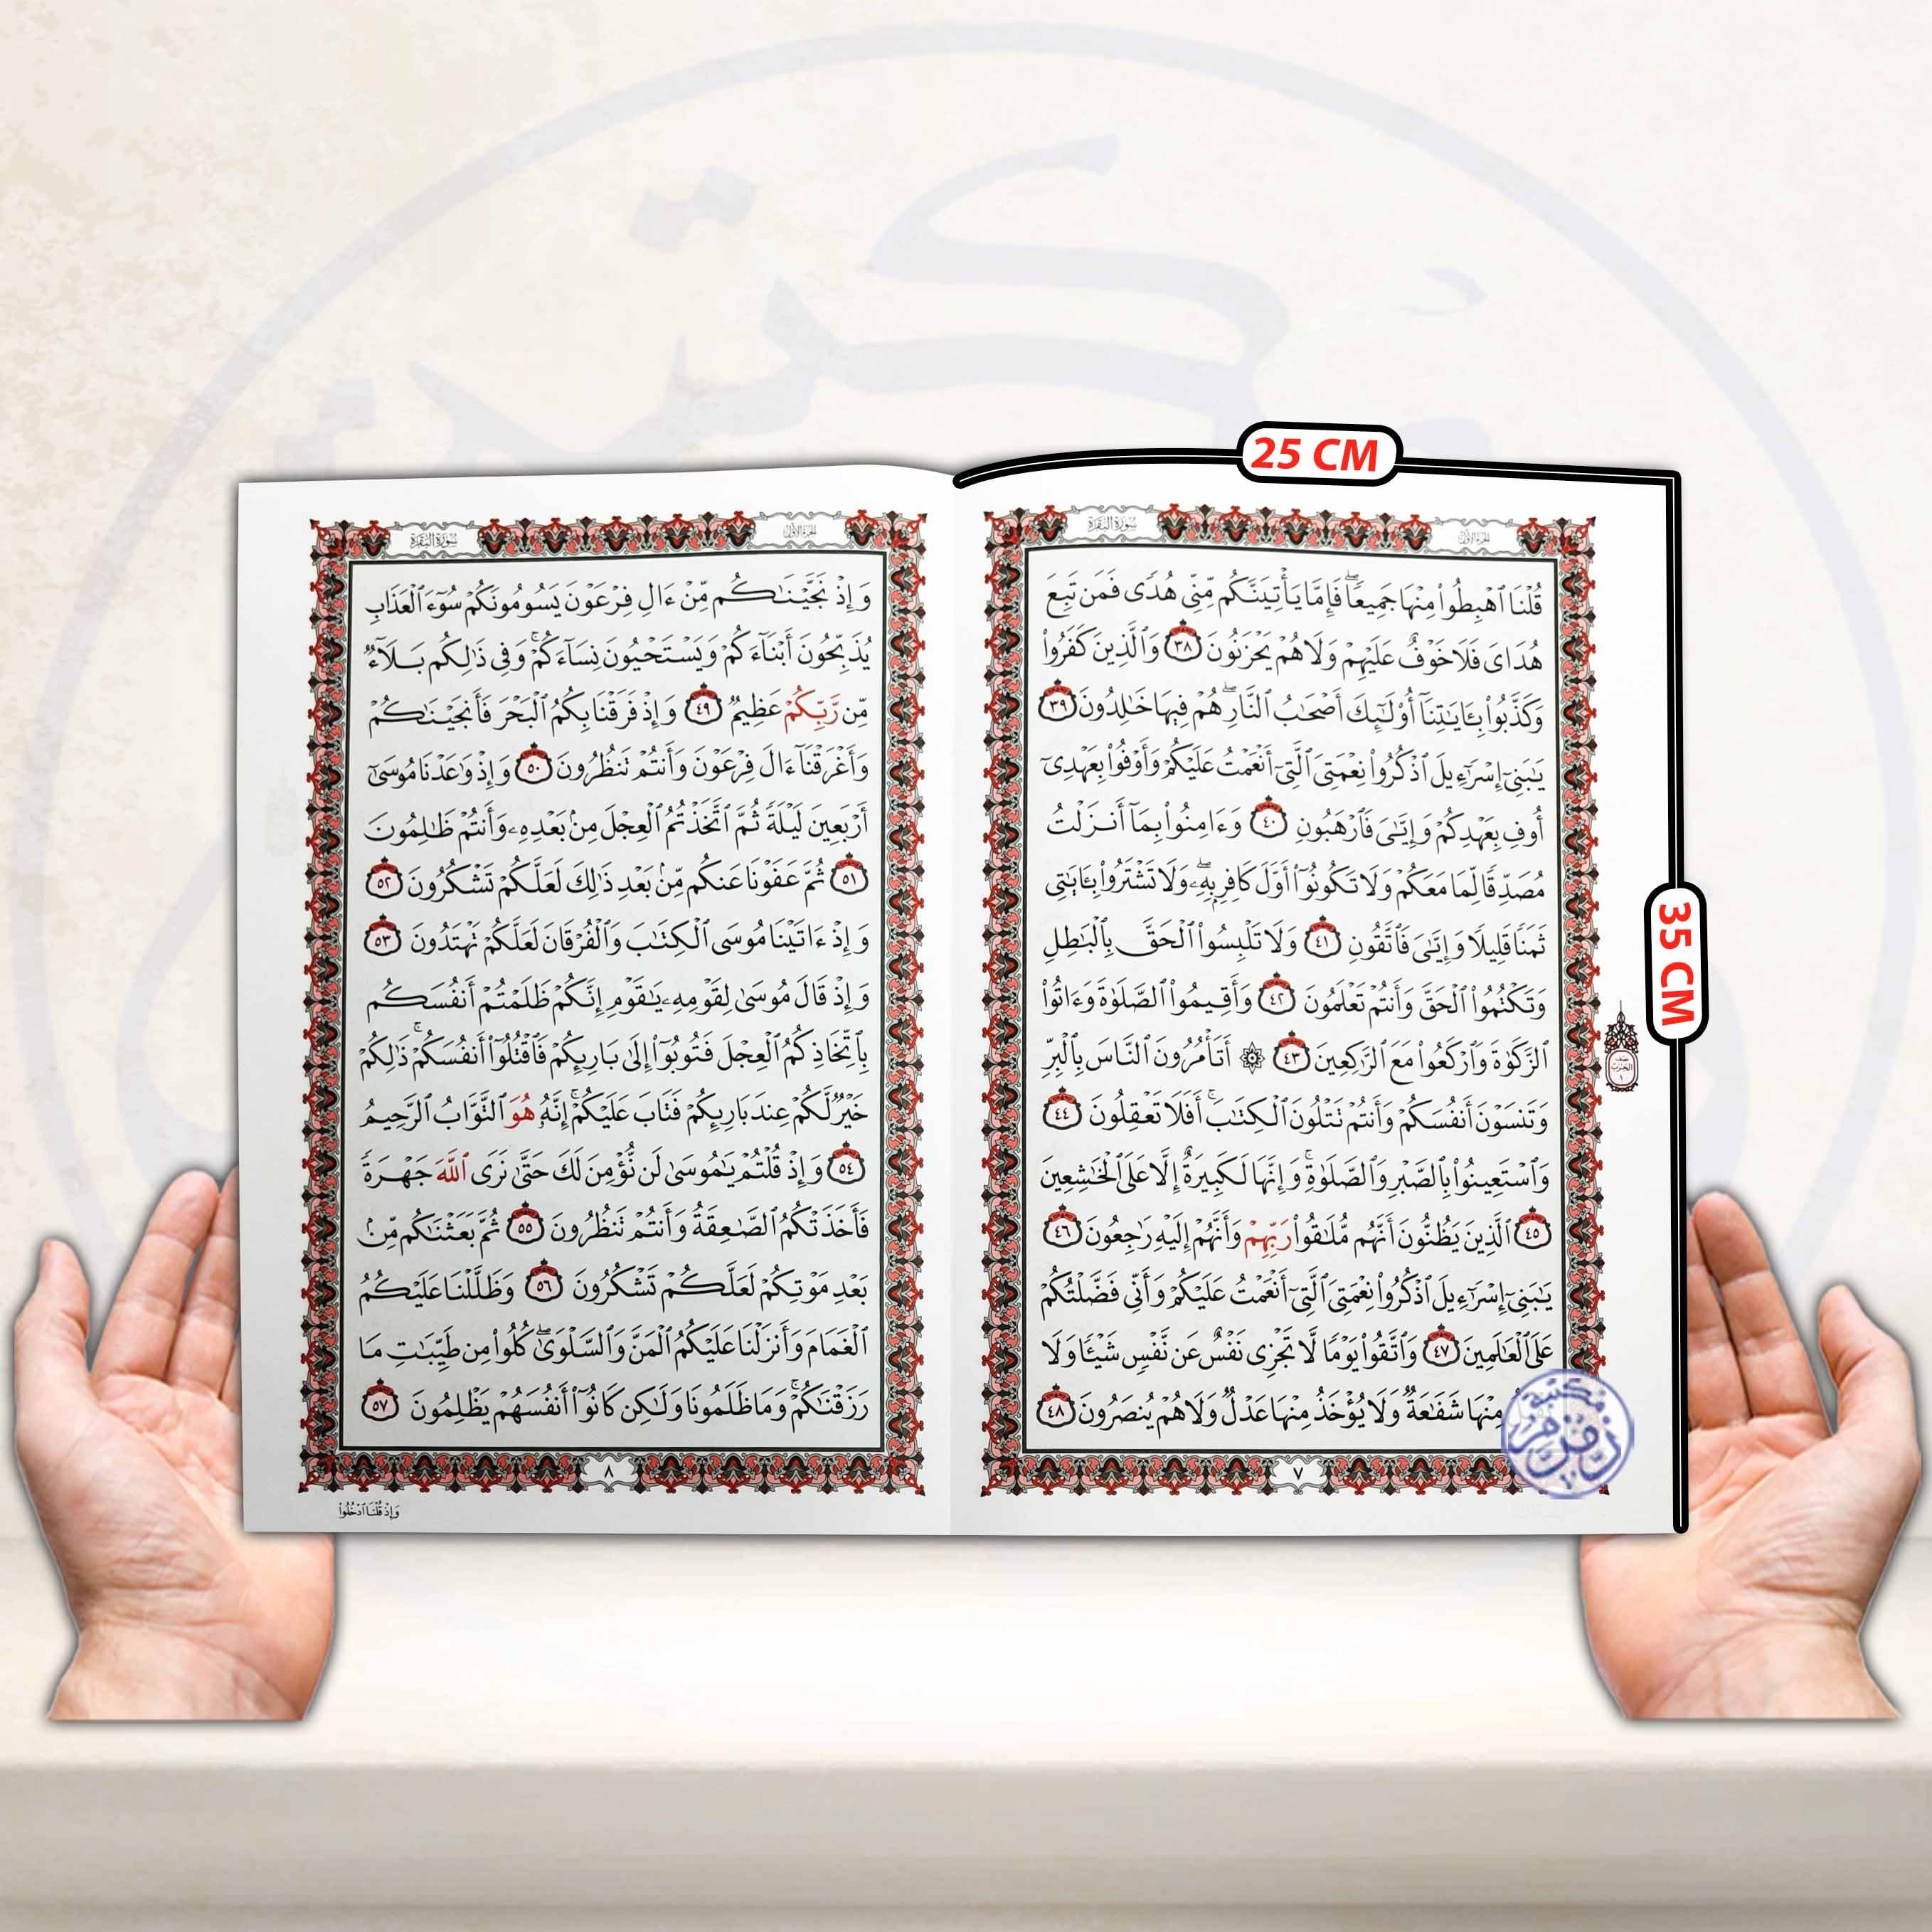 25 CM
35 CM
سورة البقرة
الجزء الأول
قُلْنَا ٱهْبِطُوا۟ مِنْهَا جَمِيعًۭا ۖ فَإِمَّا يَأْتِيَنَّكُم مِّنِّى هُدًۭى فَمَن تَبِعَ
هُدَاىَ فَلَا خَوْفٌ عَلَيْهِمْ وَلَا هُمْ يَحْزَنُونَ ٣٨ وَٱلَّذِينَ كَفَرُوا۟
وَكَذَّبُوا۟ بِـَٔايَـٰتِنَآ أُو۟لَـٰٓئِكَ أَصْحَـٰبُ ٱلنَّارِ ۖ هُمْ فِيهَا خَـٰلِدُونَ ٣٩
يَـٰبَنِىٓ إِسْرَٰٓءِيلَ ٱذْكُرُوا۟ نِعْمَتِىَ ٱلَّتِىٓ أَنْعَمْتُ عَلَيْكُمْ وَأَوْفُوا۟ بِعَهْدِىٓ
أُوفِ بِعَهْدِكُمْ وَإِيَّـٰىَ فَٱرْهَبُونِ ٤٠ وَءَامِنُوا۟ بِمَآ أَنزَلْتُ
مُصَدِّقًۭا لِّمَا مَعَكُمْ وَلَا تَكُونُوٓا۟ أَوَّلَ كَافِرٍۭ بِهِۦ ۖ وَلَا تَشْتَرُوا۟ بِـَٔايَـٰتِى
ثَمَنًۭا قَلِيلًۭا وَإِيَّـٰىَ فَٱتَّقُونِ ٤١ وَلَا تَلْبِسُوا۟ ٱلْحَقَّ بِٱلْبَـٰطِلِ
وَتَكْتُمُوا۟ ٱلْحَقَّ وَأَنتُمْ تَعْلَمُونَ ٤٢ وَأَقِيمُوا۟ ٱلصَّلَوٰةَ وَءَاتُوا۟
ٱلزَّكَوٰةَ وَٱرْكَعُوا۟ مَعَ ٱلرَّٰكِعِينَ ٤٣ ۞ أَتَأْمُرُونَ ٱلنَّاسَ بِٱلْبِرِّ
وَتَنسَوْنَ أَنفُسَكُمْ وَأَنتُمْ تَتْلُونَ ٱلْكِتَـٰبَ ۚ أَفَلَا تَعْقِلُونَ ٤٤
وَٱسْتَعِينُوا۟ بِٱلصَّبْرِ وَٱلصَّلَوٰةِ ۚ وَإِنَّهَا لَكَبِيرَةٌ إِلَّا عَلَى ٱلْخَـٰشِعِينَ
٤٥ ٱلَّذِينَ يَظُنُّونَ أَنَّهُم مُّلَـٰقُوا۟ رَبِّهِمْ وَأَنَّهُمْ إِلَيْهِ رَٰجِعُونَ ٤٦
يَـٰبَنِىٓ إِسْرَٰٓءِيلَ ٱذْكُرُوا۟ نِعْمَتِىَ ٱلَّتِىٓ أَنْعَمْتُ عَلَيْكُمْ وَأَنِّى فَضَّلْتُكُمْ
عَلَى ٱلْعَـٰلَمِينَ ٤٧ وَٱتَّقُوا۟ يَوْمًۭا لَّا تَجْزِى نَفْسٌ عَن نَّفْسٍۢ شَيْـًۭٔا وَلَا
مِنْهَا شَفَـٰعَةٌۭ وَلَا يُؤْخَذُ مِنْهَا عَدْلٌۭ وَلَا هُمْ يُنصَرُونَ ٤٨
٧
مكتبة
زمزم
سورة البقرة
الجزء الأول
وَإِذْ نَجَّيْنَـٰكُم مِّنْ ءَالِ فِرْعَوْنَ يَسُومُونَكُمْ سُوٓءَ ٱلْعَذَابِ
يُذَبِّحُونَ أَبْنَآءَكُمْ وَيَسْتَحْيُونَ نِسَآءَكُمْ ۚ وَفِى ذَٰلِكُم بَلَآءٌۭ
مِّن رَّبِّكُمْ عَظِيمٌۭ ٤٩ وَإِذْ فَرَقْنَا بِكُمُ ٱلْبَحْرَ فَأَنجَيْنَـٰكُمْ
وَأَغْرَقْنَآ ءَالَ فِرْعَوْنَ وَأَنتُمْ تَنظُرُونَ ٥٠ وَإِذْ وَٰعَدْنَا مُوسَىٰٓ
أَرْبَعِينَ لَيْلَةًۭ ثُمَّ ٱتَّخَذْتُمُ ٱلْعِجْلَ مِنۢ بَعْدِهِۦ وَأَنتُمْ ظَـٰلِمُونَ
٥١ ثُمَّ عَفَوْنَا عَنكُم مِّنۢ بَعْدِ ذَٰلِكَ لَعَلَّكُمْ تَشْكُرُونَ ٥٢
وَإِذْ ءَاتَيْنَا مُوسَى ٱلْكِتَـٰبَ وَٱلْفُرْقَانَ لَعَلَّكُمْ تَهْتَدُونَ ٥٣
وَإِذْ قَالَ مُوسَىٰ لِقَوْمِهِۦ يَـٰقَوْمِ إِنَّكُمْ ظَلَمْتُمْ أَنفُسَكُم
بِٱتِّخَاذِكُمُ ٱلْعِجْلَ فَتُوبُوٓا۟ إِلَىٰ بَارِئِكُمْ فَٱقْتُلُوٓا۟ أَنفُسَكُمْ ۚ ذَٰلِكُمْ
خَيْرٌۭ لَّكُمْ عِندَ بَارِئِكُمْ فَتَابَ عَلَيْكُمْ ۚ إِنَّهُۥ هُوَ ٱلتَّوَّابُ ٱلرَّحِيمُ
٥٤ وَإِذْ قُلْتُمْ يَـٰمُوسَىٰ لَن نُّؤْمِنَ لَكَ حَتَّىٰ نَرَى ٱللَّهَ جَهْرَةًۭ
فَأَخَذَتْكُمُ ٱلصَّـٰعِقَةُ وَأَنتُمْ تَنظُرُونَ ٥٥ ثُمَّ بَعَثْنَـٰكُم مِّنۢ
بَعْدِ مَوْتِكُمْ لَعَلَّكُمْ تَشْكُرُونَ ٥٦ وَظَلَّلْنَا عَلَيْكُمُ
ٱلْغَمَامَ وَأَنزَلْنَا عَلَيْكُمُ ٱلْمَنَّ وَٱلسَّلْوَىٰ ۖ كُلُوا۟ مِن طَيِّبَـٰتِ مَا
رَزَقْنَـٰكُمْ ۖ وَمَا ظَلَمُونَا وَلَـٰكِن كَانُوٓا۟ أَنفُسَهُمْ يَظْلِمُونَ ٥٧
٨
وَإِذْ قُلْنَا ٱدْخُلُوا۟